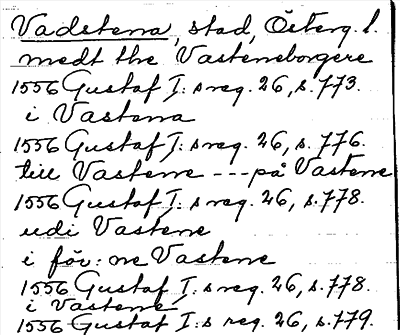 Vadstena, stad, Österg. l.
medt the Vasteneborgere
1556 Gustaf I: s reg. 26, s. 773.
i Vastena
1556 Gustaf I: s reg. 26, s. 776.
till Vastene --- på Vastene
1556 Gustaf I: s reg. 26, s. 778.
udi Vastene
i för: ne Vastene
1556 Gustaf I: s reg. 26, s. 778.
i Vastene
1556 Gustaf I: s reg. 26, s. 779.